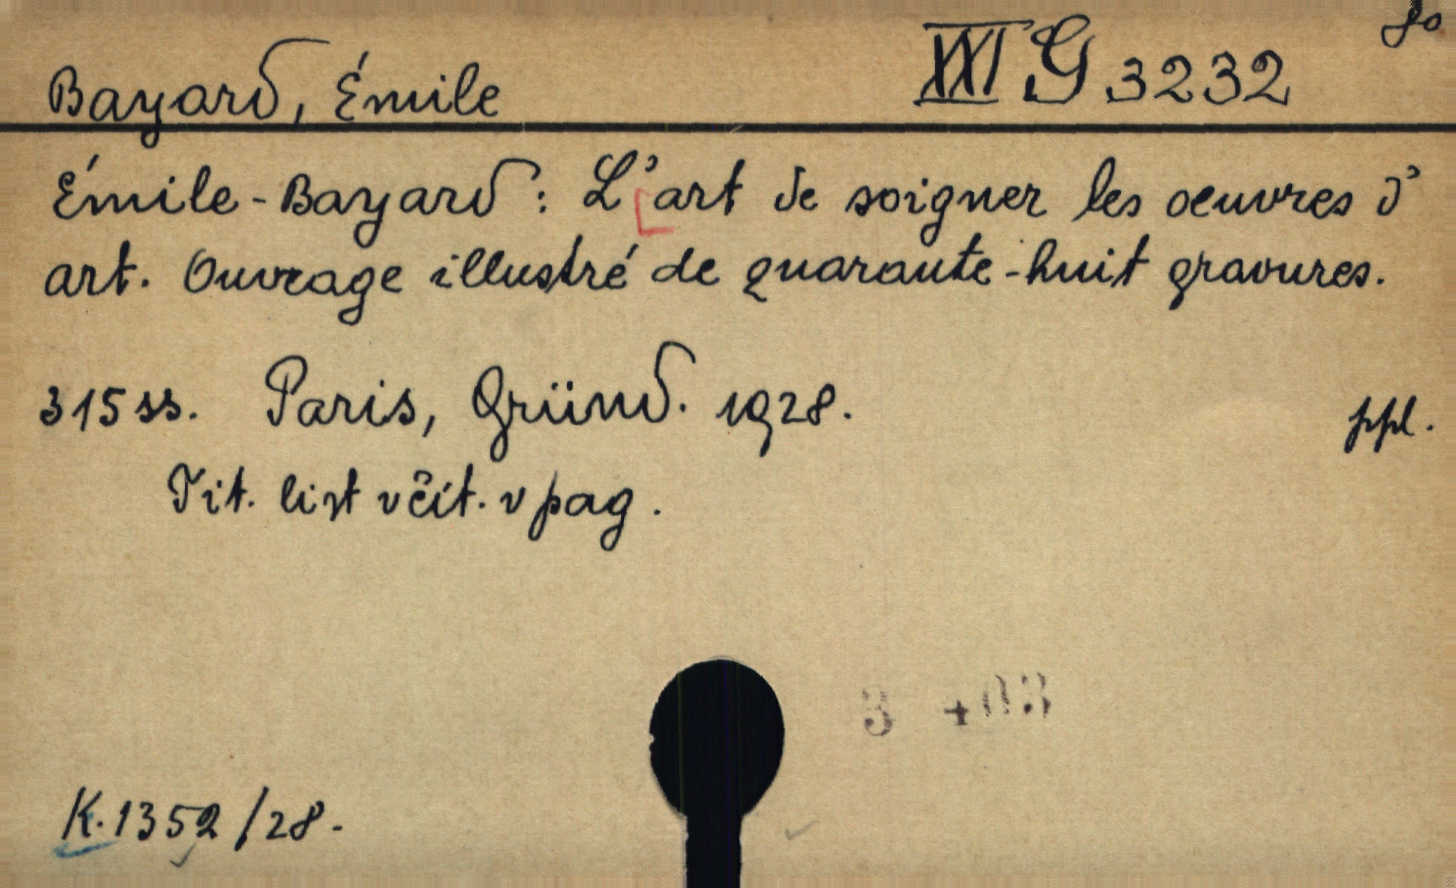 Bayard, Émile XXI G 3232
Émile-Bayard: L'art de soigner les oeuvres d'
art. Ouvrage illustré de quarante-huit gravures.
315 ss. Paris, Gründ. 1928. ppl.
Tit. list včít. v pag.
K. 1352/28.